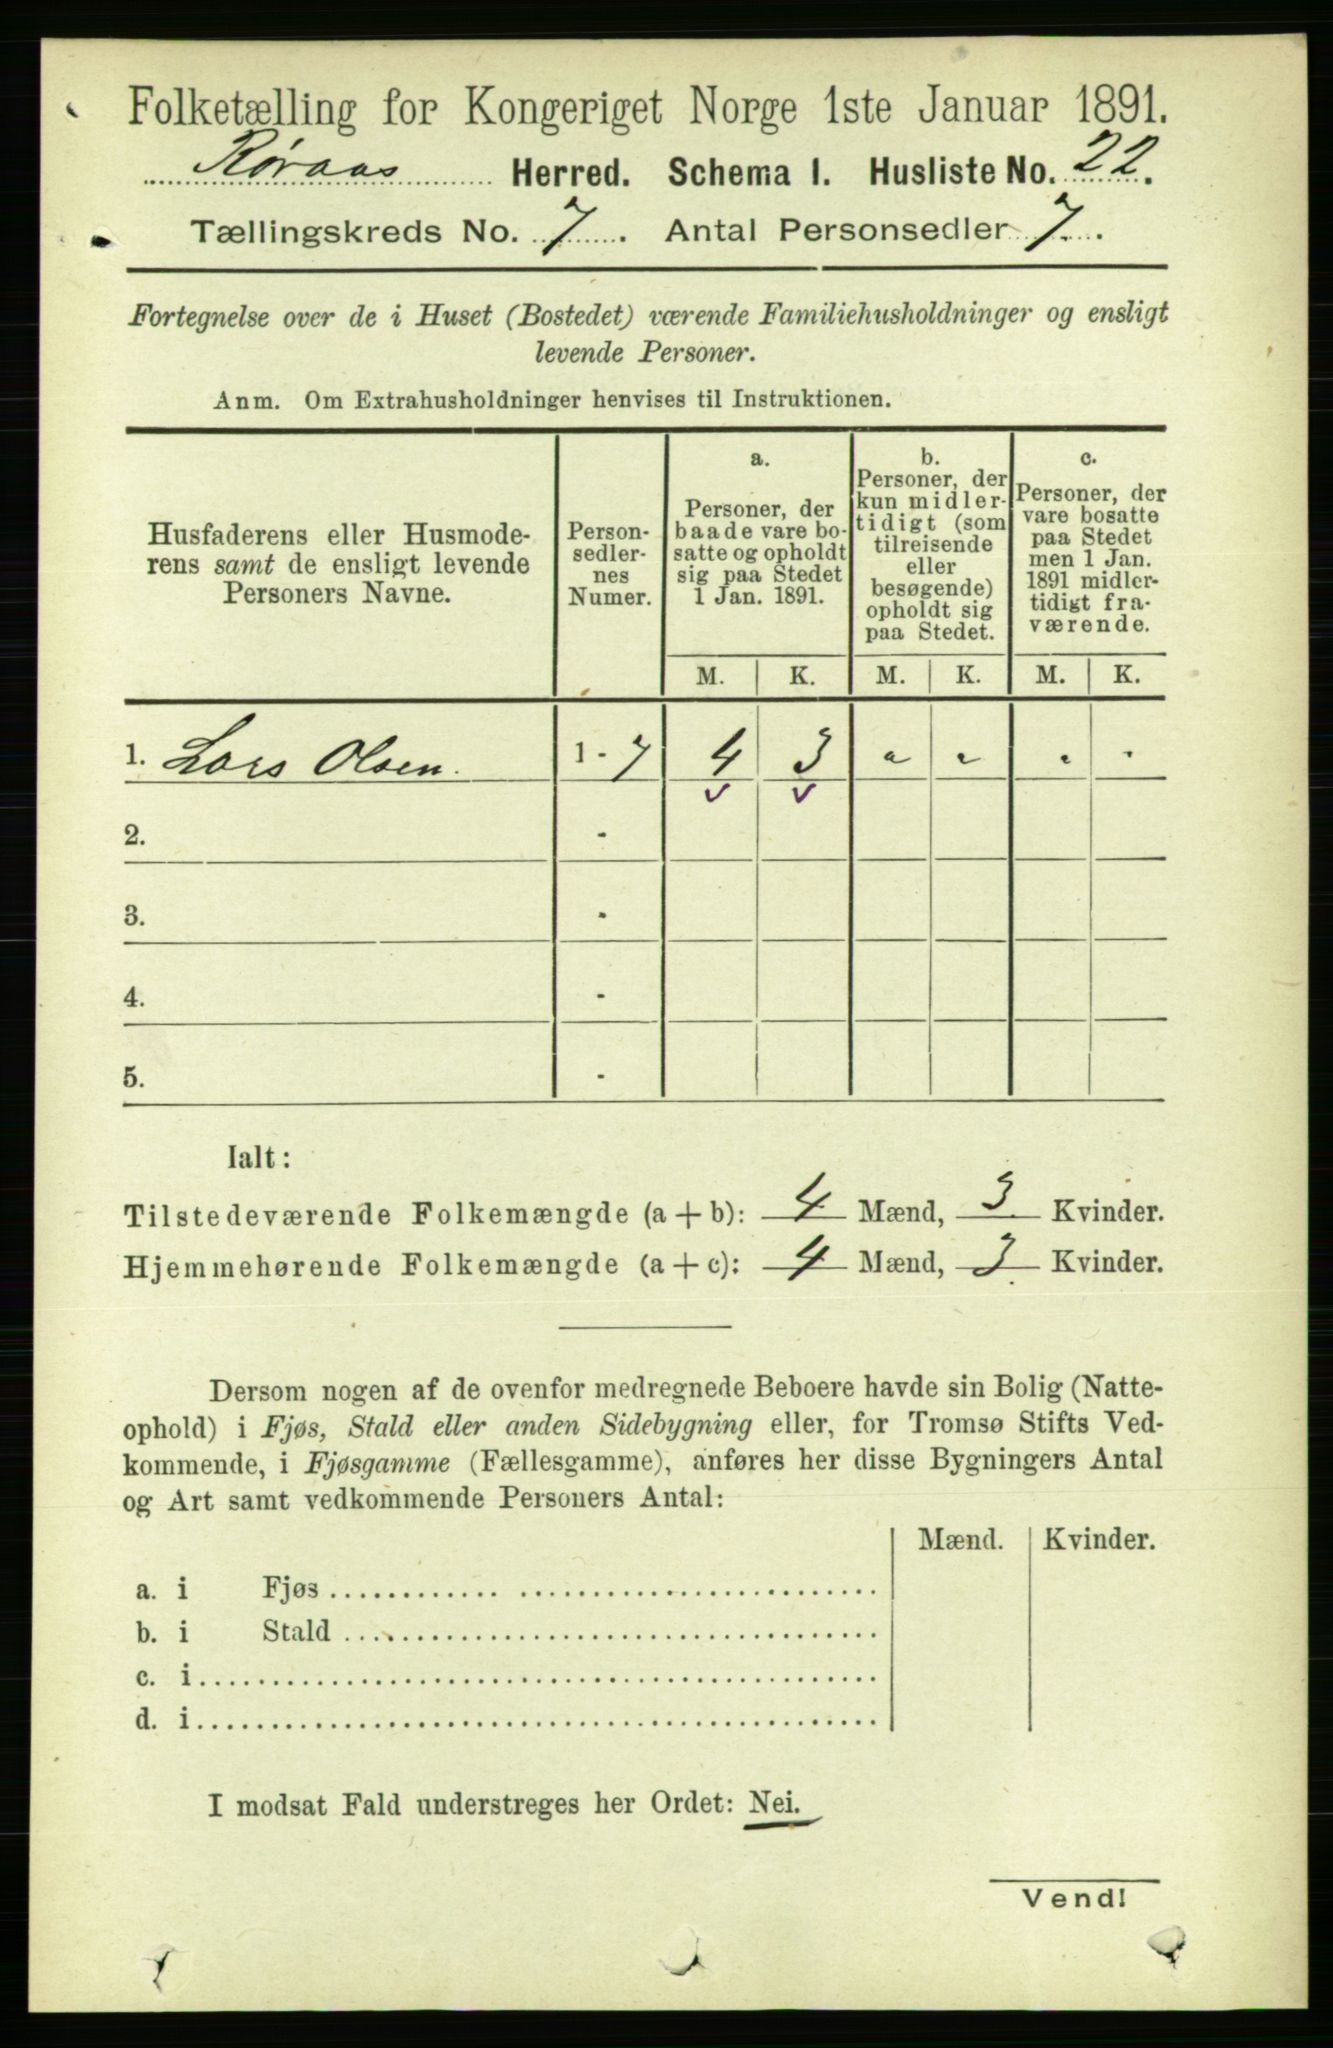 Folketælling for Kongeriget Norge 1ste Januar 1891.
Røraas Herred. Schema 1. Husliste No. 22.
Tællingskreds No. 7. Antal Personsedler 7.
Fortegnelse over de i Huset (Bostedet) værende Familiehusholdninger og ensligt
levende Personer.
Anm. Om Extrahusholdninger henvises til Instruktionen.
Husfaderens eller Husmode-
rens samt de ensligt levende
Personers Navne.
Person-
sedler-
nes
Numer.
a.
Personer, der
baade vare bo-
satte og opholdt
sig paa Stedet
1 Jan. 1891.
b.
Personer, der
kun midler-
tidigt (som
tilreisende
eller
besøgende)
opholdt sig
paa Stedet.
c.
Personer, der
vare bosatte
paa Stedet
men 1 Jan.
1891 midler-
tidigt fra-
værende.
M. K. M. K. M. K.
1. Lars Olsen. 1 - 7 4 3 " " " "
2. -
3. -
4. -
5. -
Ialt:
Tilstedeværende Folkemængde (a + b): 4 Mænd, 3 Kvinder.
Hjemmehørende Folkemængde (a + c): 4 Mænd, 3 Kvinder.
Dersom nogen af de ovenfor medregnede Beboere havde sin Bolig (Natte-
ophold) i Fjøs, Stald eller anden Sidebygning eller, for Tromsø Stifts Ved-
kommende, i Fjøsgamme (Fællesgamme), anføres her disse Bygningers Antal
og Art samt vedkommende Personers Antal:
Mænd. Kvinder.
a. i Fjøs
b. i Stald
c. i
d. i
I modsat Fald understreges her Ordet: Nei.
Vend!